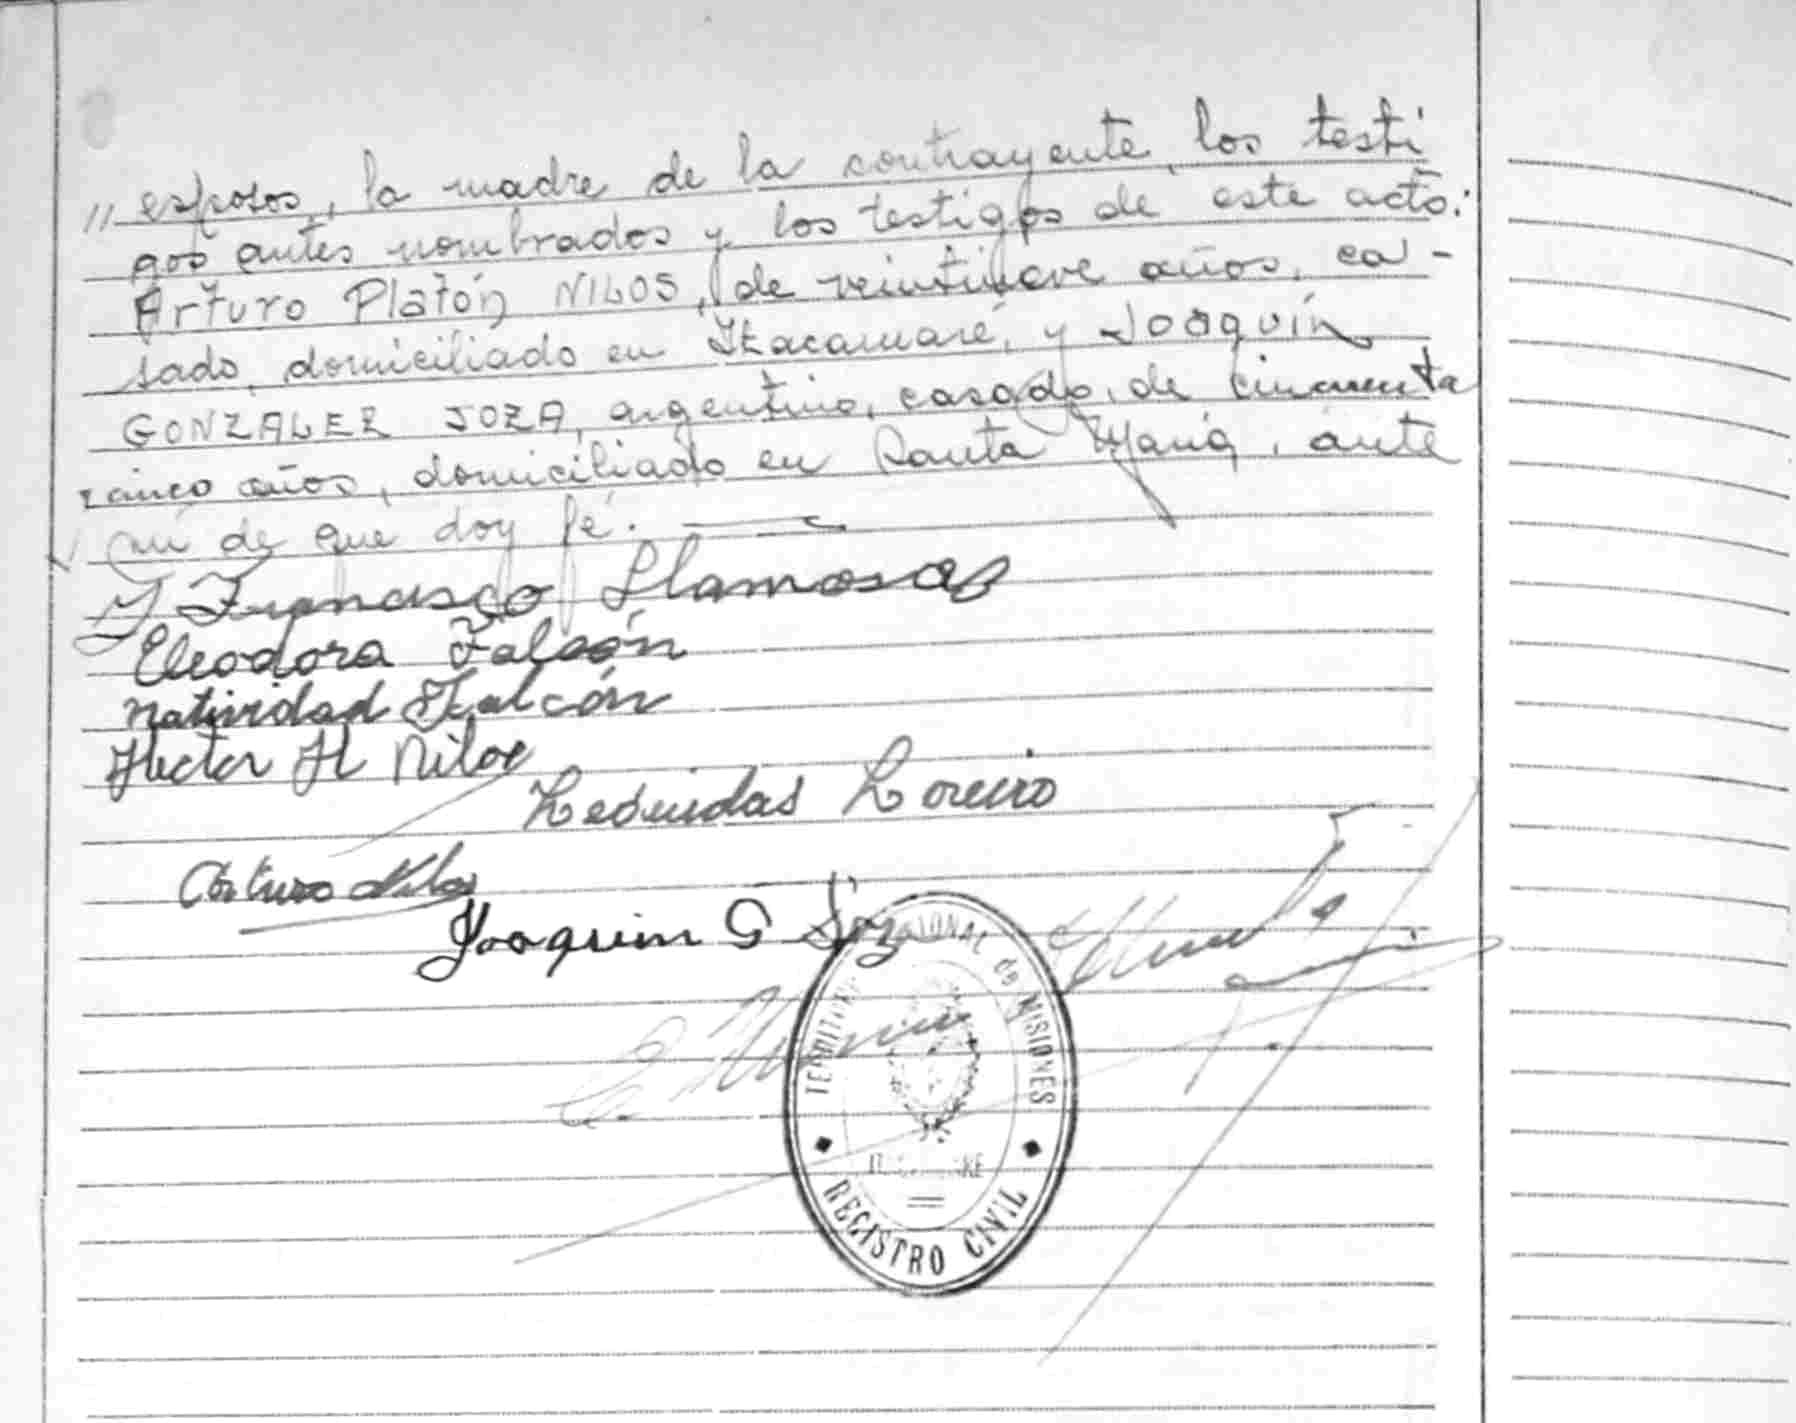 // esposos, la madre de la contrayente, los testi
gos antes nombrados y los testigos de este acto:
Arturo Platón NILOS, de veintinueve años, ca-
sado, domiciliado en Itacaruaré, y Joaquín
GONZALEZ SOZA, argentino, casado, de cincuenta
cinco años, domiciliado en Santa María, ante
mí de que doy fé.
Francisco Llamosas
Eleodora Falcón
Natividad Falcón
Hector H Nilos
Leonidas Loreiro
Arturo Nilos
Joaquin G Soza
TERRITORIO NACIONAL de MISIONES
REGISTRO CIVIL